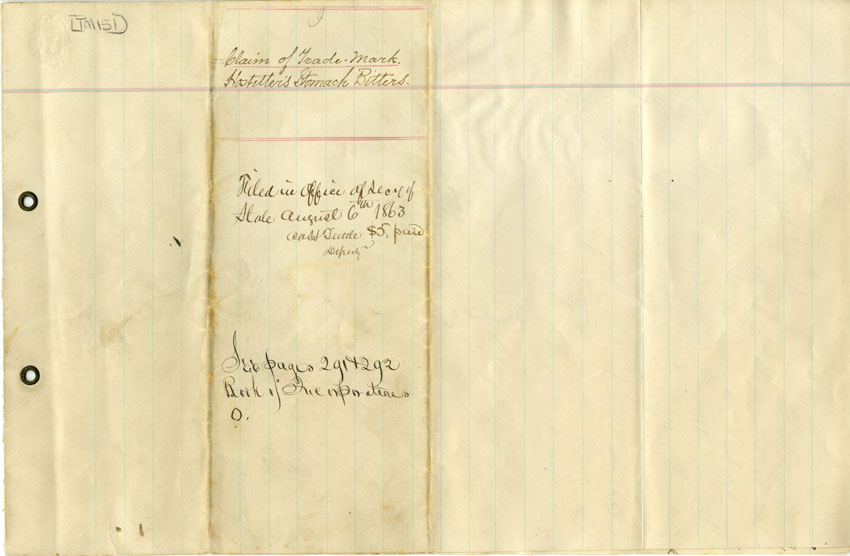 [TM151]
Claim of Trade-Mark.
Hostetter's Stomach Bitters.
Filed in Office of Secy of
State August 6th 1863
Tuttle $5. paid
Deputy
See pages 291 & 292
Book of Incorporations
O.